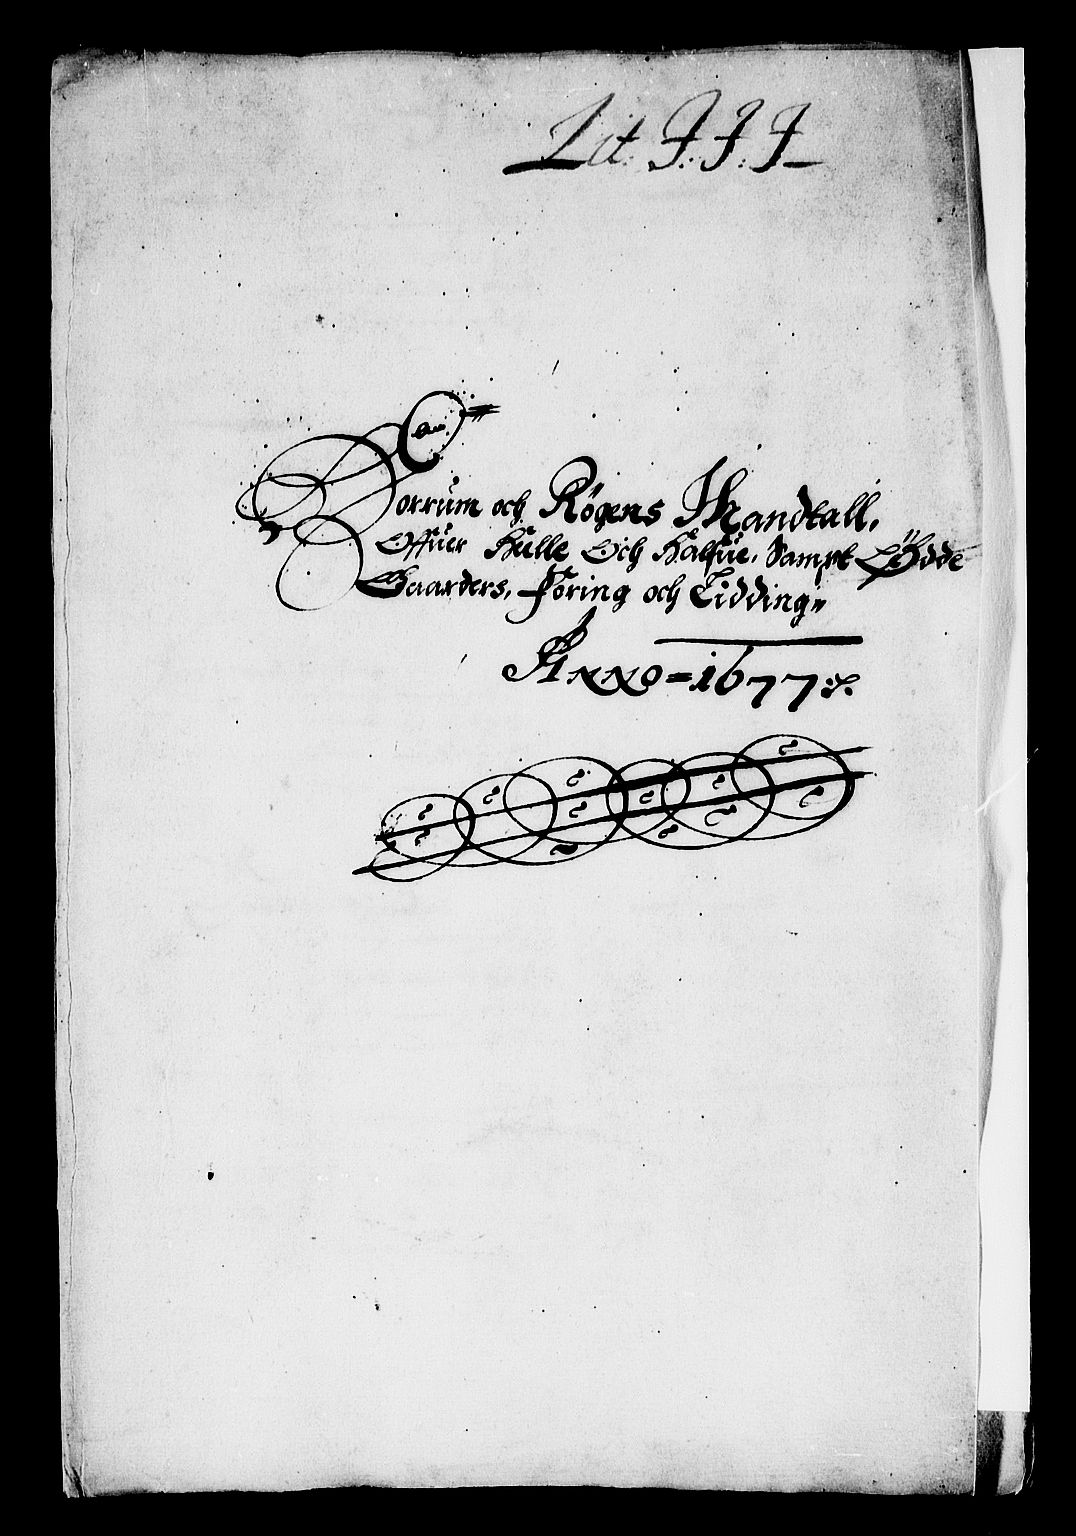 Lit: J: J: J
Horrum och Røgens Mandtall,
Offuer Hælle Och Halfue, Sampt Ødde
Gaarders, Føring och Tidding
Anno = 1677